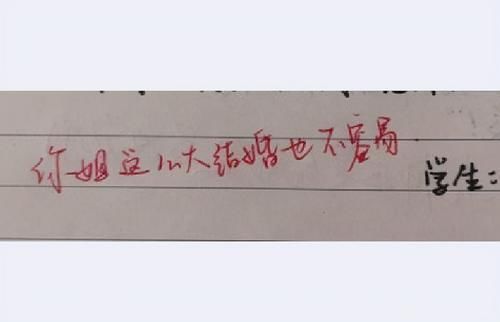 你姐这么大结婚也不容易
学生: